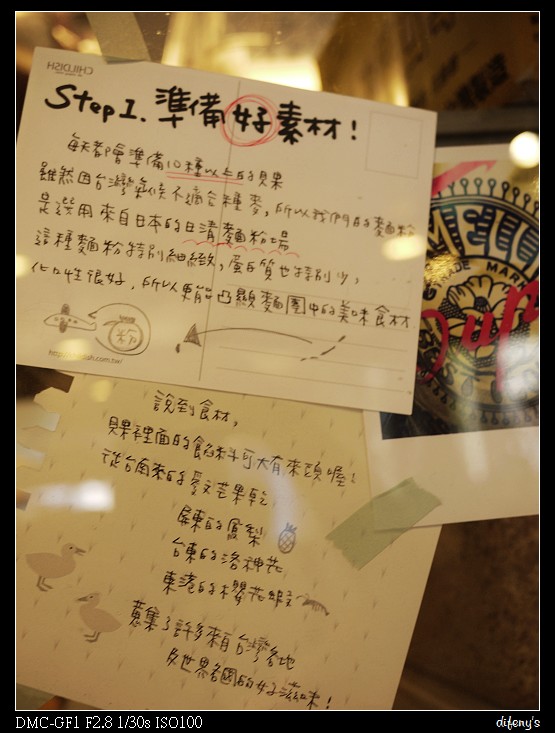 CHILDISH
Step1. 準備好素材!
每天都會準備10種以上的貝果
雖然因台灣氣候不適合種麥,所以我們的麵粉
是選用來自日本的日清麵粉場
這種麵粉特別細緻,蛋白質也特別少,
化口性很好,所以更能凸顯麵團中的美味食材
粉
TRADE MARK
說到食材,
貝果裡面的餡料可大有來頭喔!
從台南來的愛文芒果乾
屏東的鳳梨
台東的洛神花
東港的櫻花蝦
蒐集了許多來自台灣各地
及世界各國的好滋味!
DMC-GF1 F2.8 1/30s ISO100
difeny's